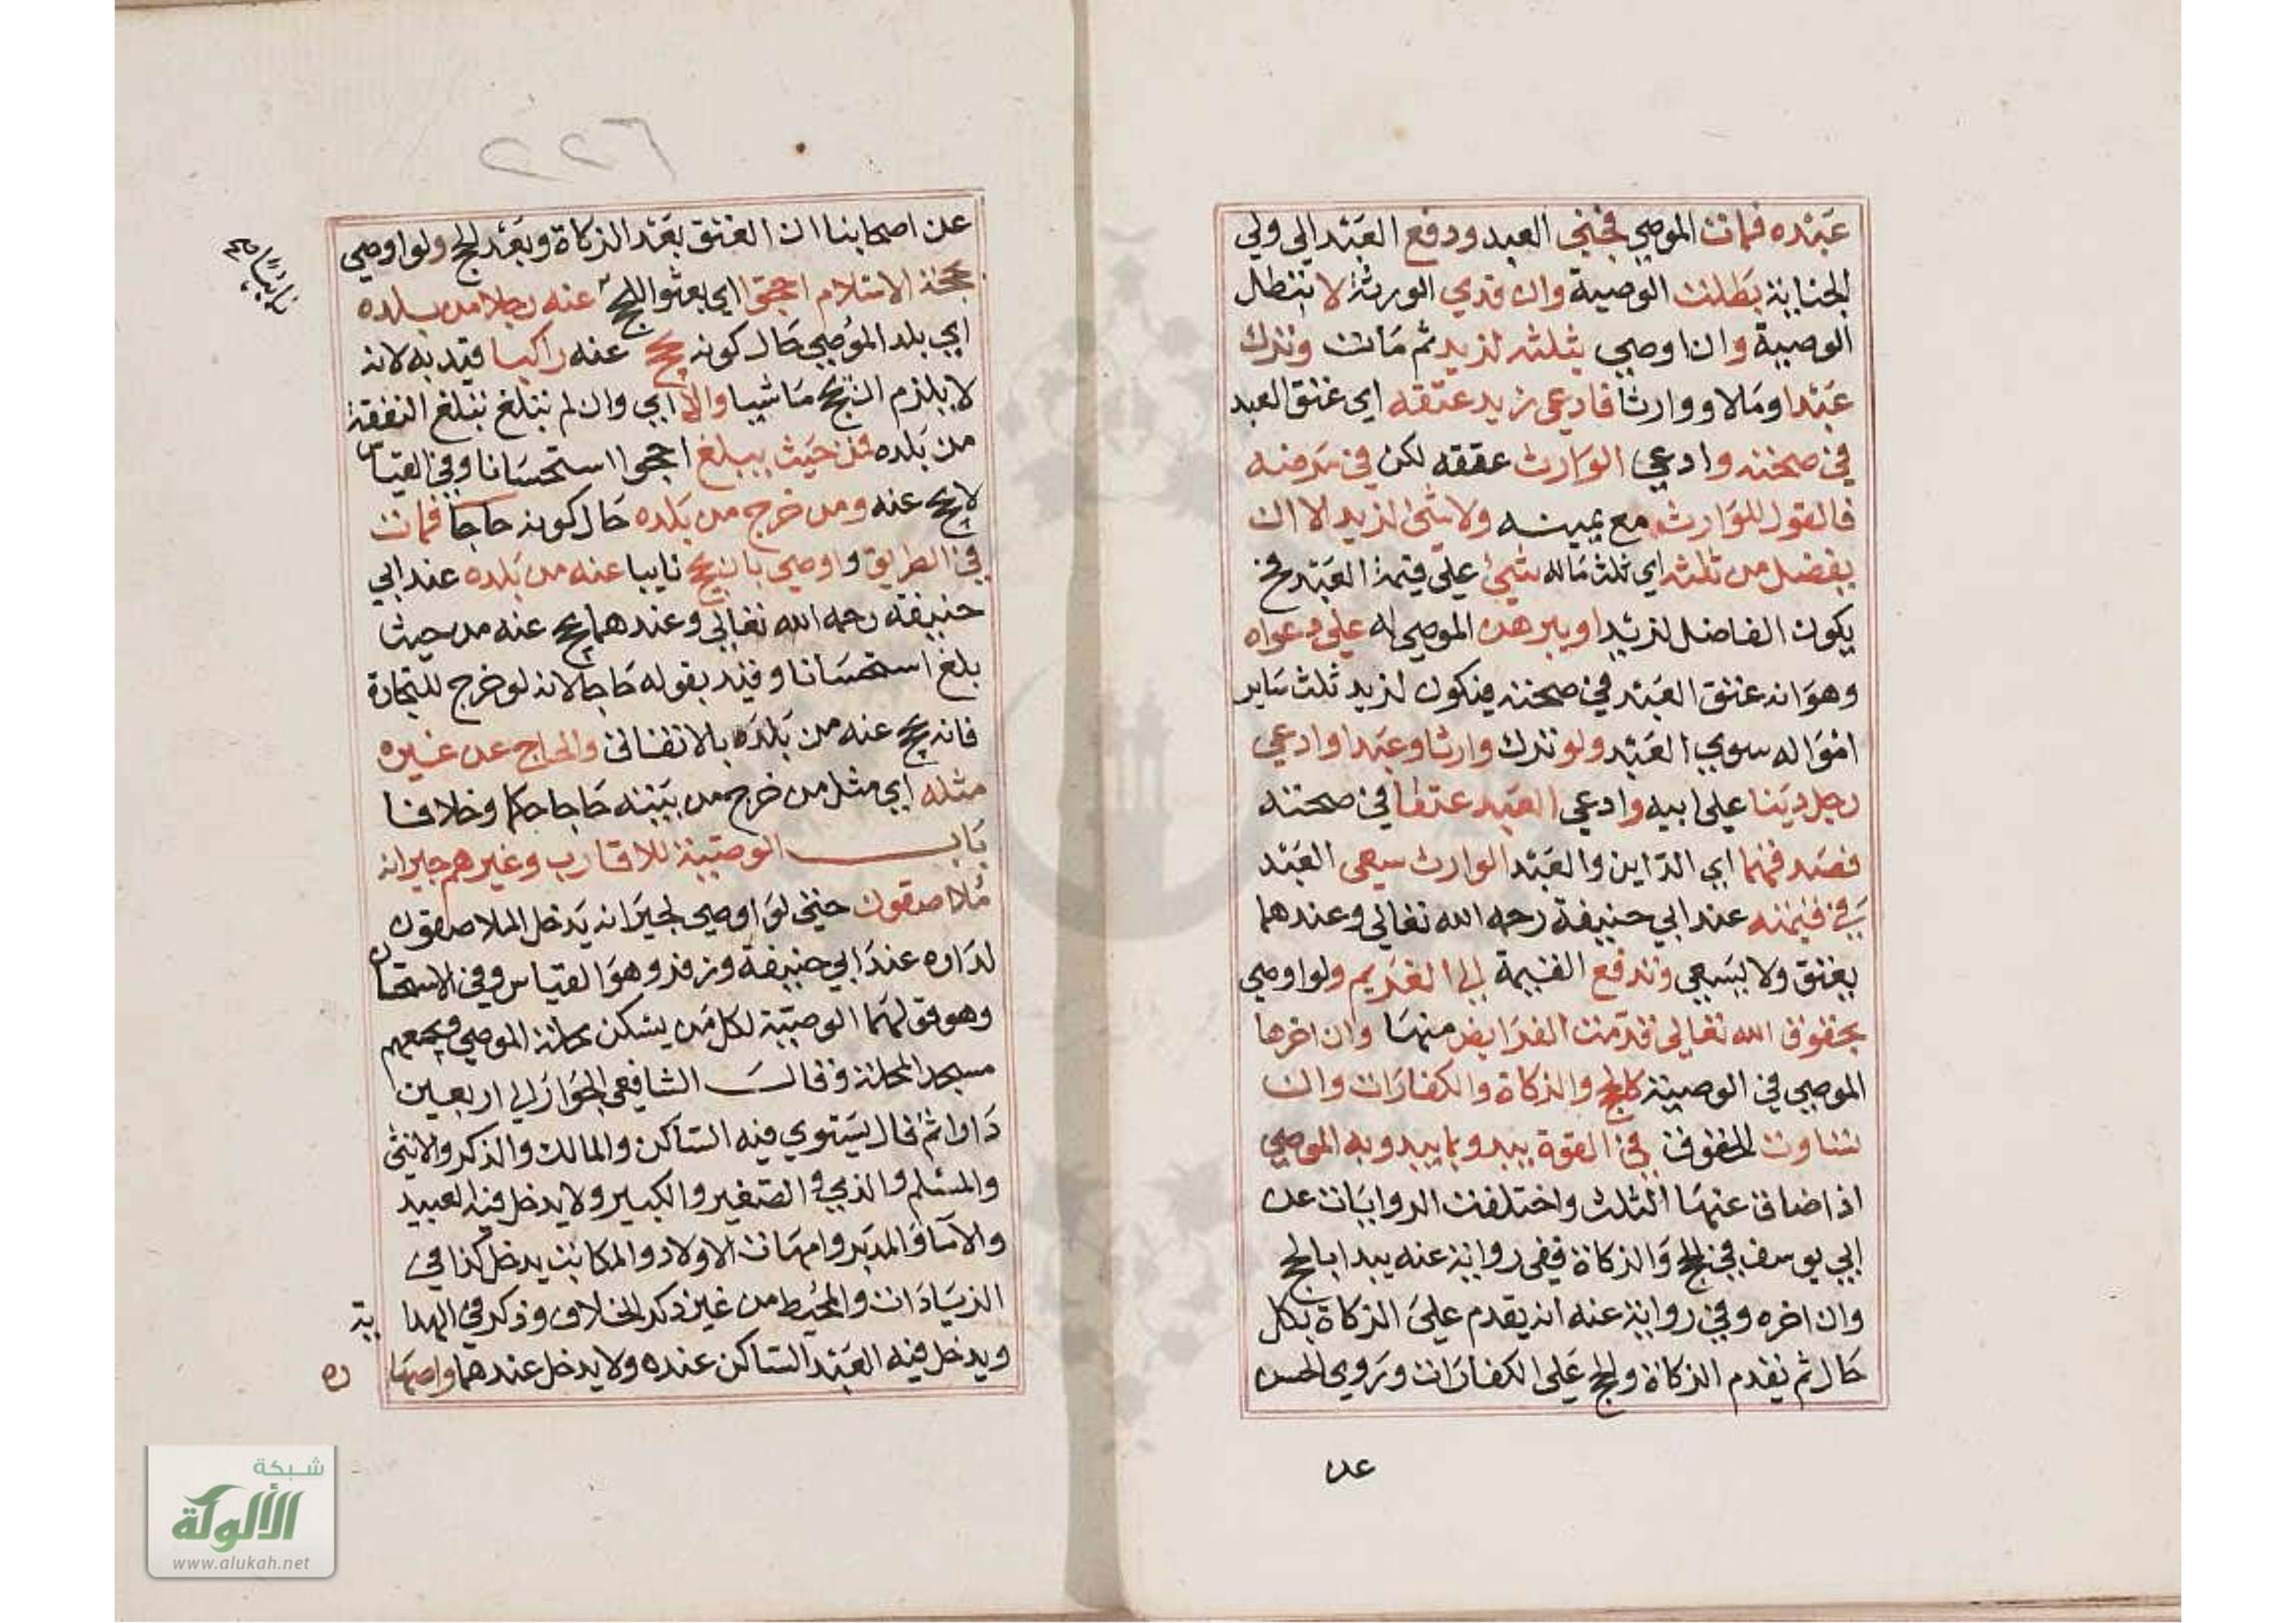 عبده فمات الموصي فجنى العبد ودفع العبد الى ولي
الجناية بطلت الوصية وان فدي الورثة لا تبطل
الوصية وان اوصي بثلثه لزيد ثم مات وترك
عبدا ومالا ووارثا فادعى زيد عتقه اي عتق العبد
في صحته وادعي الوارث عتقه لكن في مرضه
فالقول للوارث مع يمينه ولا شئ لزيد الا ان
يفضل من ثلثه اي ثلث ماله شئ على قيمة العبد فح
يكون الفاضل لزيد او يبرهن الموصي له على دعواه
وهو انه عتق العبد في صحته فيكون لزيد ثلث ساير
امواله سوي العبد ولو ترك وارثا وعبدا وادعي
رجل دينا على ابيه وادعي العبد عتقا في صحته
فصدقهما اي الداين والعبد الوارث سعى العبد
في قيمته عند ابي حنيفة رحمه الله تعالي وعندهما
يعتق ولا يسعي وتدفع القيمة الى الغريم ولو اوصي
بحقوق الله تعالي قدمت الفرايض منها وان اخرها
الموصي في الوصية كالحج والزكاة والكفارات وان
تساوت الحقوق في القوة يبدو بما يبدو به الموصي
اذا ضاق عنها الثلث واختلفت الروايات عن
ابي يوسف في الحج والزكاة ففى رواية عنه يبدا بالحج
وان اخره وفي رواية عنه انه يقدم على الزكاة بكل
حال ثم تقدم الزكاة والحج على الكفارات وروي الحسن
عن
٢٢٦
عن اصحابنا ان العتق بعد الزكاة وبعد الحج ولو اوصي
بحجة الاسلام احجوا اي بعثوا للحج عنه رجلا من بلده
نايبا صح
اي بلد الموصي حال كونه يحج عنه راكبا قيد به لانه
لا يلزم ان يحج ماشيا والا اي وان لم تبلغ تبلغ النفقة
من بلده فمن حيث يبلغ احجوا استحسانا وفي القياس
لا يحج عنه ومن خرج من بلده حال كونه حاجا فمات
في الطريق واوصى بان يحج نايبا عنه من بلده عند ابي
حنيفة رحمه الله تعالي وعندهما يحج عنه من حيث
بلغ استحسانا وقيد بقوله حاجا لانه لو خرج للتجارة
فانه يحج عنه من بلده بالاتفاق والحاج عن غيره
مثله اي مثل من خرج من بيته حاجا حكما وخلافا
باب الوصية للاقارب وغيرهم جيرانه
ملاصقون حتي لو اوصي لجيرانه يدخل الملاصقون
لداره عند ابي حنيفة وزفر وهو القياس وفي الاستحسان
وهو قولهما الوصية لكل من يسكن محلة الموصي ويجمعهم
مسجد المحلة وقال الشافعي الجوار الى اربعين
دارا ثم قال يستوي فيه الساكن والمالك والذكر والانثى
والمسلم والذمي والصغير والكبير ولا يدخل فيه العبيد
والاماء والمدبر وامهات الاولاد والمكاتب يدخل كذا في
الزيادات والمحيط من غير ذكر الخلاف وذكر في الهداية
ويدخل فيه العبد الساكن عنده ولا يدخل عندهما واصهاره
شبكة
الألوكة
www.alukah.net